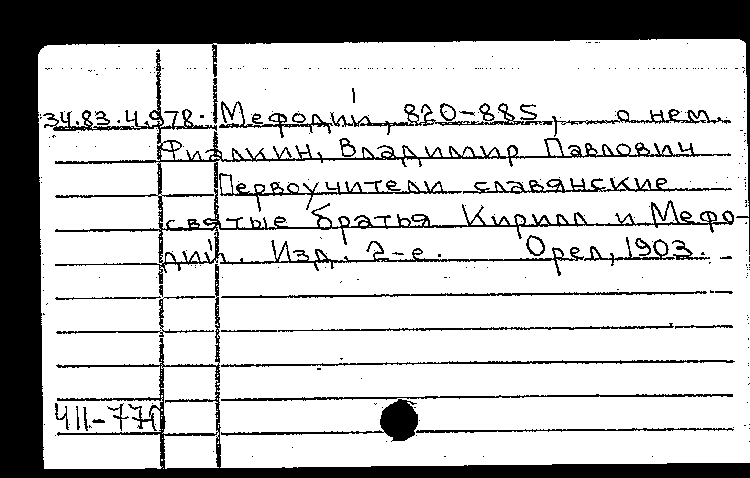 34.83.4.978. Мефодий, 820-885, о нем.
Фиалкин, Владимир Павлович
Первоучители славянские
святые братья Кирилл и Мефо-
дий. Изд. 2-е. Орел, 1903.
Ч11-770